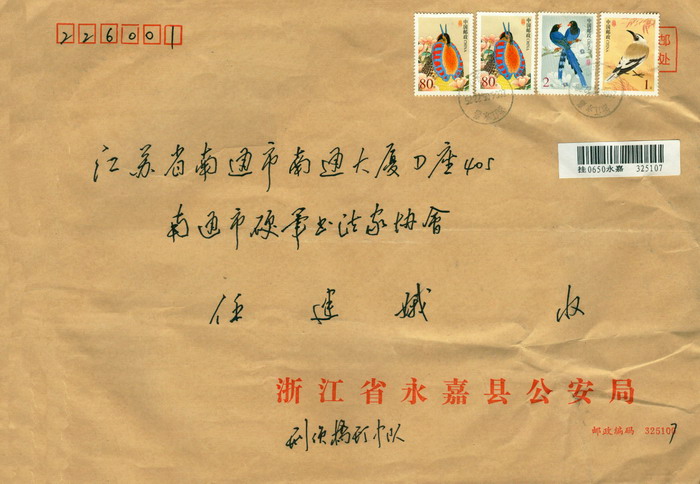 226001
中国邮政 80分
中国邮政 80分
中国邮政 2元
中国邮政 1元
邮
处
江苏省南通市南通大厦D座405
挂0650永嘉 325107
南通市硬笔书法家协會
任建娥 收
浙江省永嘉县公安局
邮政编码 325107
中队